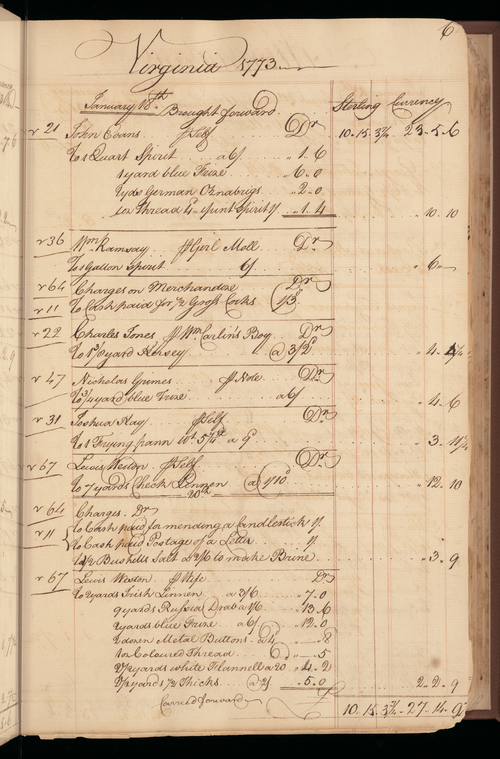 6
Virginia 1773
January 18th Brought forward Sterling Currency
v 21 John Evans ⅌ Self Dr 10.. 15.. 3½ 23.. 5.. 6
To 1 Quart Spirit a 6/ .. 1.. 6
1 yard blue Frize .. 6.. 0
2 yds German Oznabrigs .. 2.. 0
1 oz Thread 4d 1 pint Spirit 1/ .. 1.. 4 .. 10.. 10
v 36 Wm Ramsay ⅌ Girl Moll Dr
To 1 Gallon Spirit 6/ .. 6..
v 64 Charges on Merchandize Dr
v 11 To Cash paid for ½ Gross Corks 1/3
v 22 Charles Jones ⅌ Wm Carlin's Boy Dr
yard Kersey @ 3/2 .. 4..
v 47 Nicholas Grimes ⅌ Note Dr
To ¾ yard blue Frize a 6/ .. 4.. 6
v 31 Joshua Kay ⅌ Self Dr
To 1 Frying pann wt a 9d .. 3..
v 67 Lewis Weston ⅌ Self Dr
To 7 yards Check Linnen @ 1/10d .. 12.. 10
20th
v 64 Charges Dr
v 11 To Cash paid for mending a Candlestick
To Cash paid Postage of a Letter
Bushells Salt a 2/6 to make Brine .. 3.. 9
v 67 Lewis Weston ⅌ Wife Dr
To 2 yards Irish Linnen a 3/6 .. 7.. 0
9 yards Russia Drab a 1/6 .. 13.. 6
2 yards blue Frize a 6/ .. 12.. 0
2 dozen Metal Buttons a 4 .. .. 8
1 oz Coloured Thread .. .. 5
2½ yards white Flannell a 20 .. 4.. 2
2½ yards Thicks @ 2/ .. 5.. 0 2.. 2.. 9
Carried forward 10.. 15.. 3½ 27.. 14..